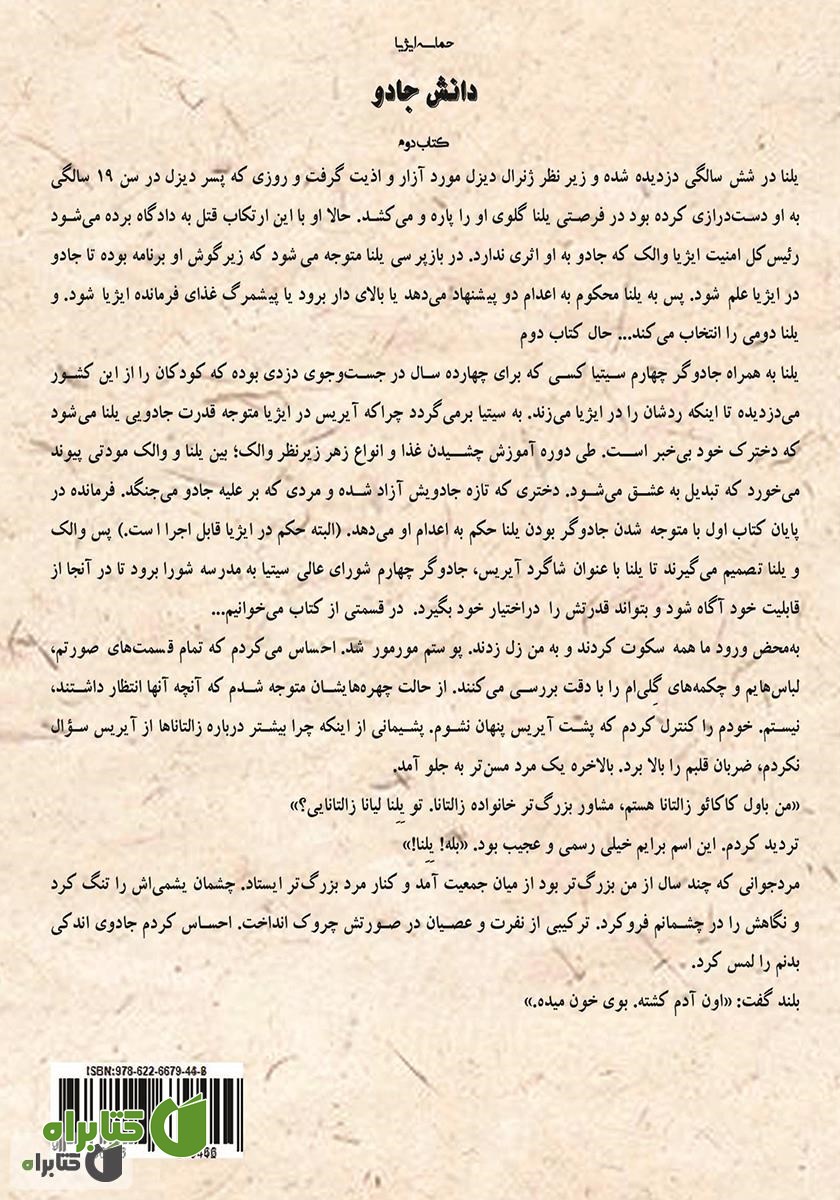 حماسه ایژیا
دانش جادو
کتاب دوم
یلنا در شش سالگی دزدیده شده و زیر نظر ژنرال دیزل مورد آزار و اذیت گرفت و روزی که پسر دیزل در سن ۱۹ سالگی
به او دست‌درازی کرده بود در فرصتی یلنا گلوی او را پاره و می‌کشد. حالا او با این ارتکاب قتل به دادگاه برده می‌شود
رئیس‌کل امنیت ایژیا والک که جادو به او اثری ندارد. در بازپر سی یلنا متوجه می شود که زیرگوش او برنامه بوده تا جادو
در ایژیا علم شود. پس به یلنا محکوم به اعدام دو پیشنهاد می‌دهد یا بالای دار برود یا پیشمرگ غذای فرمانده ایژیا شود. و
یلنا دومی را انتخاب می‌کند... حال کتاب دوم
یلنا به همراه جادوگر چهارم سیتیا کسی که برای چهارده سال در جست‌وجوی دزدی بوده که کودکان را از این کشور
می‌دزدیده تا اینکه ردشان را در ایژیا می‌زند. به سیتیا برمی‌گردد چراکه آیریس در ایژیا متوجه قدرت جادویی یلنا می‌شود
که دخترک خود بی‌خبر است. طی دوره آموزش چشیدن غذا و انواع زهر زیرنظر والک؛ بین یلنا و والک مودتی پیوند
می‌خورد که تبدیل به عشق می‌شود. دختری که تازه جادویش آزاد شده و مردی که بر علیه جادو می‌جنگد. فرمانده در
پایان کتاب اول با متوجه شدن جادوگر بودن یلنا حکم به اعدام او می‌دهد. (البته حکم در ایژیا قابل اجرا است.) پس والک
و یلنا تصمیم می‌گیرند تا یلنا با عنوان شاگرد آیریس، جادوگر چهارم شورای عالی سیتیا به مدرسه شورا برود تا در آنجا از
قابلیت خود آگاه شود و بتواند قدرتش را دراختیار خود بگیرد. در قسمتی از کتاب می‌خوانیم...
به‌محض ورود ما همه سکوت کردند و به من زل زدند. پو ستم مورمور شد. احساس می‌کردم که تمام قسمت‌های صورتم،
لباس‌هایم و چکمه‌های گِلی‌ام را با دقت بررسی می‌کنند. از حالت چهره‌هایشان متوجه شدم که آنچه آنها انتظار داشتند،
نیستم. خودم را کنترل کردم که پشت آیریس پنهان نشوم. پشیمانی از اینکه چرا بیشتر درباره زالتاناها از آیریس سؤال
نکردم، ضربان قلبم را بالا برد. بالاخره یک مرد مسن‌تر به جلو آمد.
«من باول کاکائو زالتانا هستم، مشاور بزرگ‌تر خانواده زالتانا. تو یِلِنا لیانا زالتانایی؟»
تردید کردم. این اسم برایم خیلی رسمی و عجیب بود. «بله! یِلِنا!»
مردجوانی که چند سال از من بزرگ‌تر بود از میان جمعیت آمد و کنار مرد بزرگ‌تر ایستاد. چشمان یشمی‌اش را تنگ کرد
و نگاهش را در چشمانم فروکرد. ترکیبی از نفرت و عصیان در صورتش چروک انداخت. احساس کردم جادوی اندکی
بدنم را لمس کرد.
بلند گفت: «اون آدم کشته. بوی خون میده.»
ISBN:978-622-6679-44-6
کتابراه
کتابراه